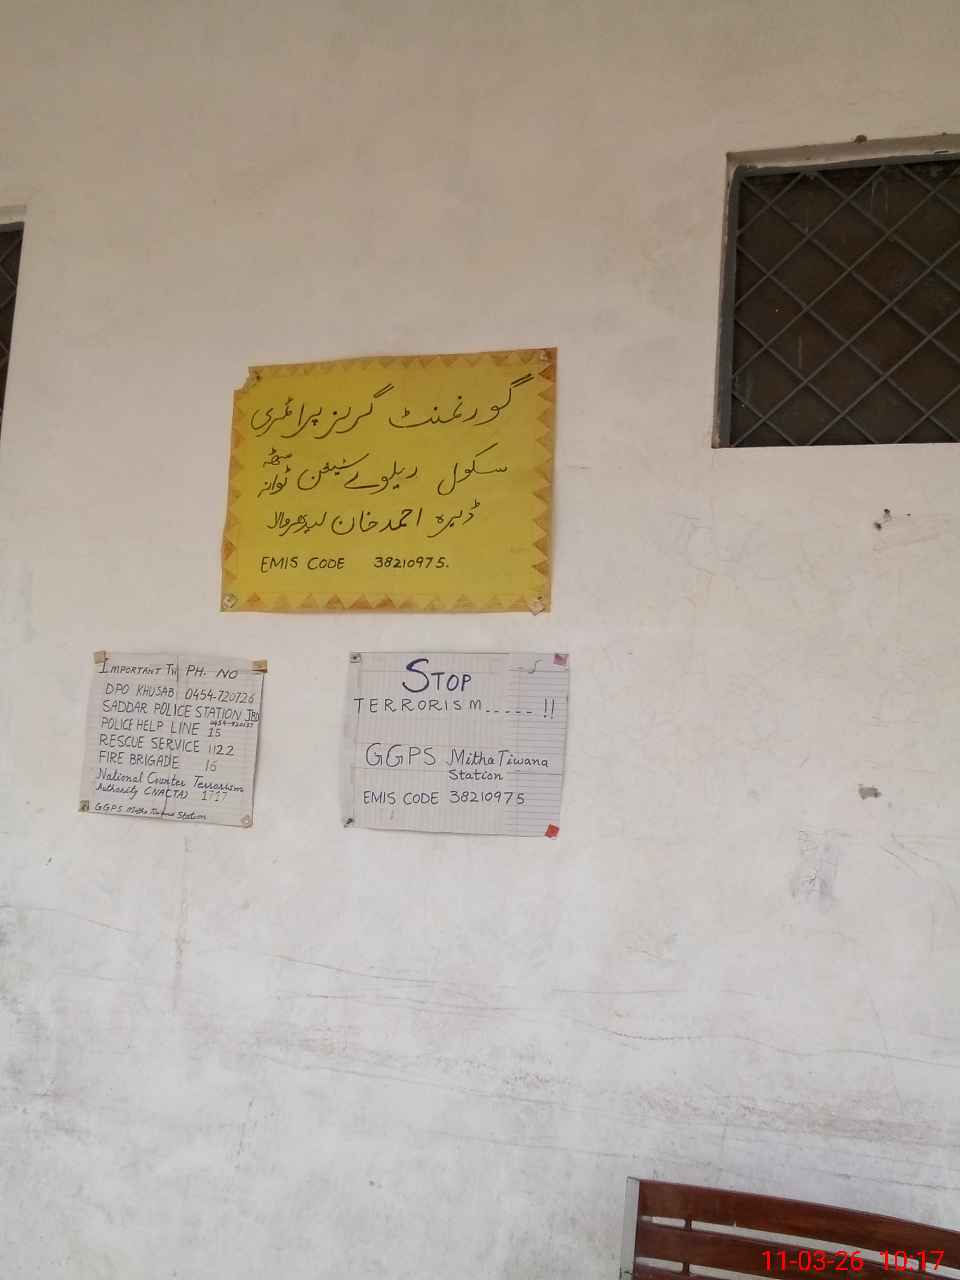 گورنمنٹ گرلز پرائمری
سکول ریلوے سٹیشن مٹھہ ٹوانہ
ڈیرہ احمد خان
EMIS CODE 38210975.
IMPORTANT PH. NO
DPO KHUSAB 0454-720726
SADDAR POLICE STATION JBD
POLICE HELP LINE 15
RESCUE SERVICE 1122
FIRE BRIGADE 16
National Counter Terrorism
Authority (NACTA) 1717
GGPS Mitha Tiwana Station
STOP
TERRORISM.....!!
GGPS Mitha Tiwana
Station
EMIS CODE 38210975
11-03-26 10:17